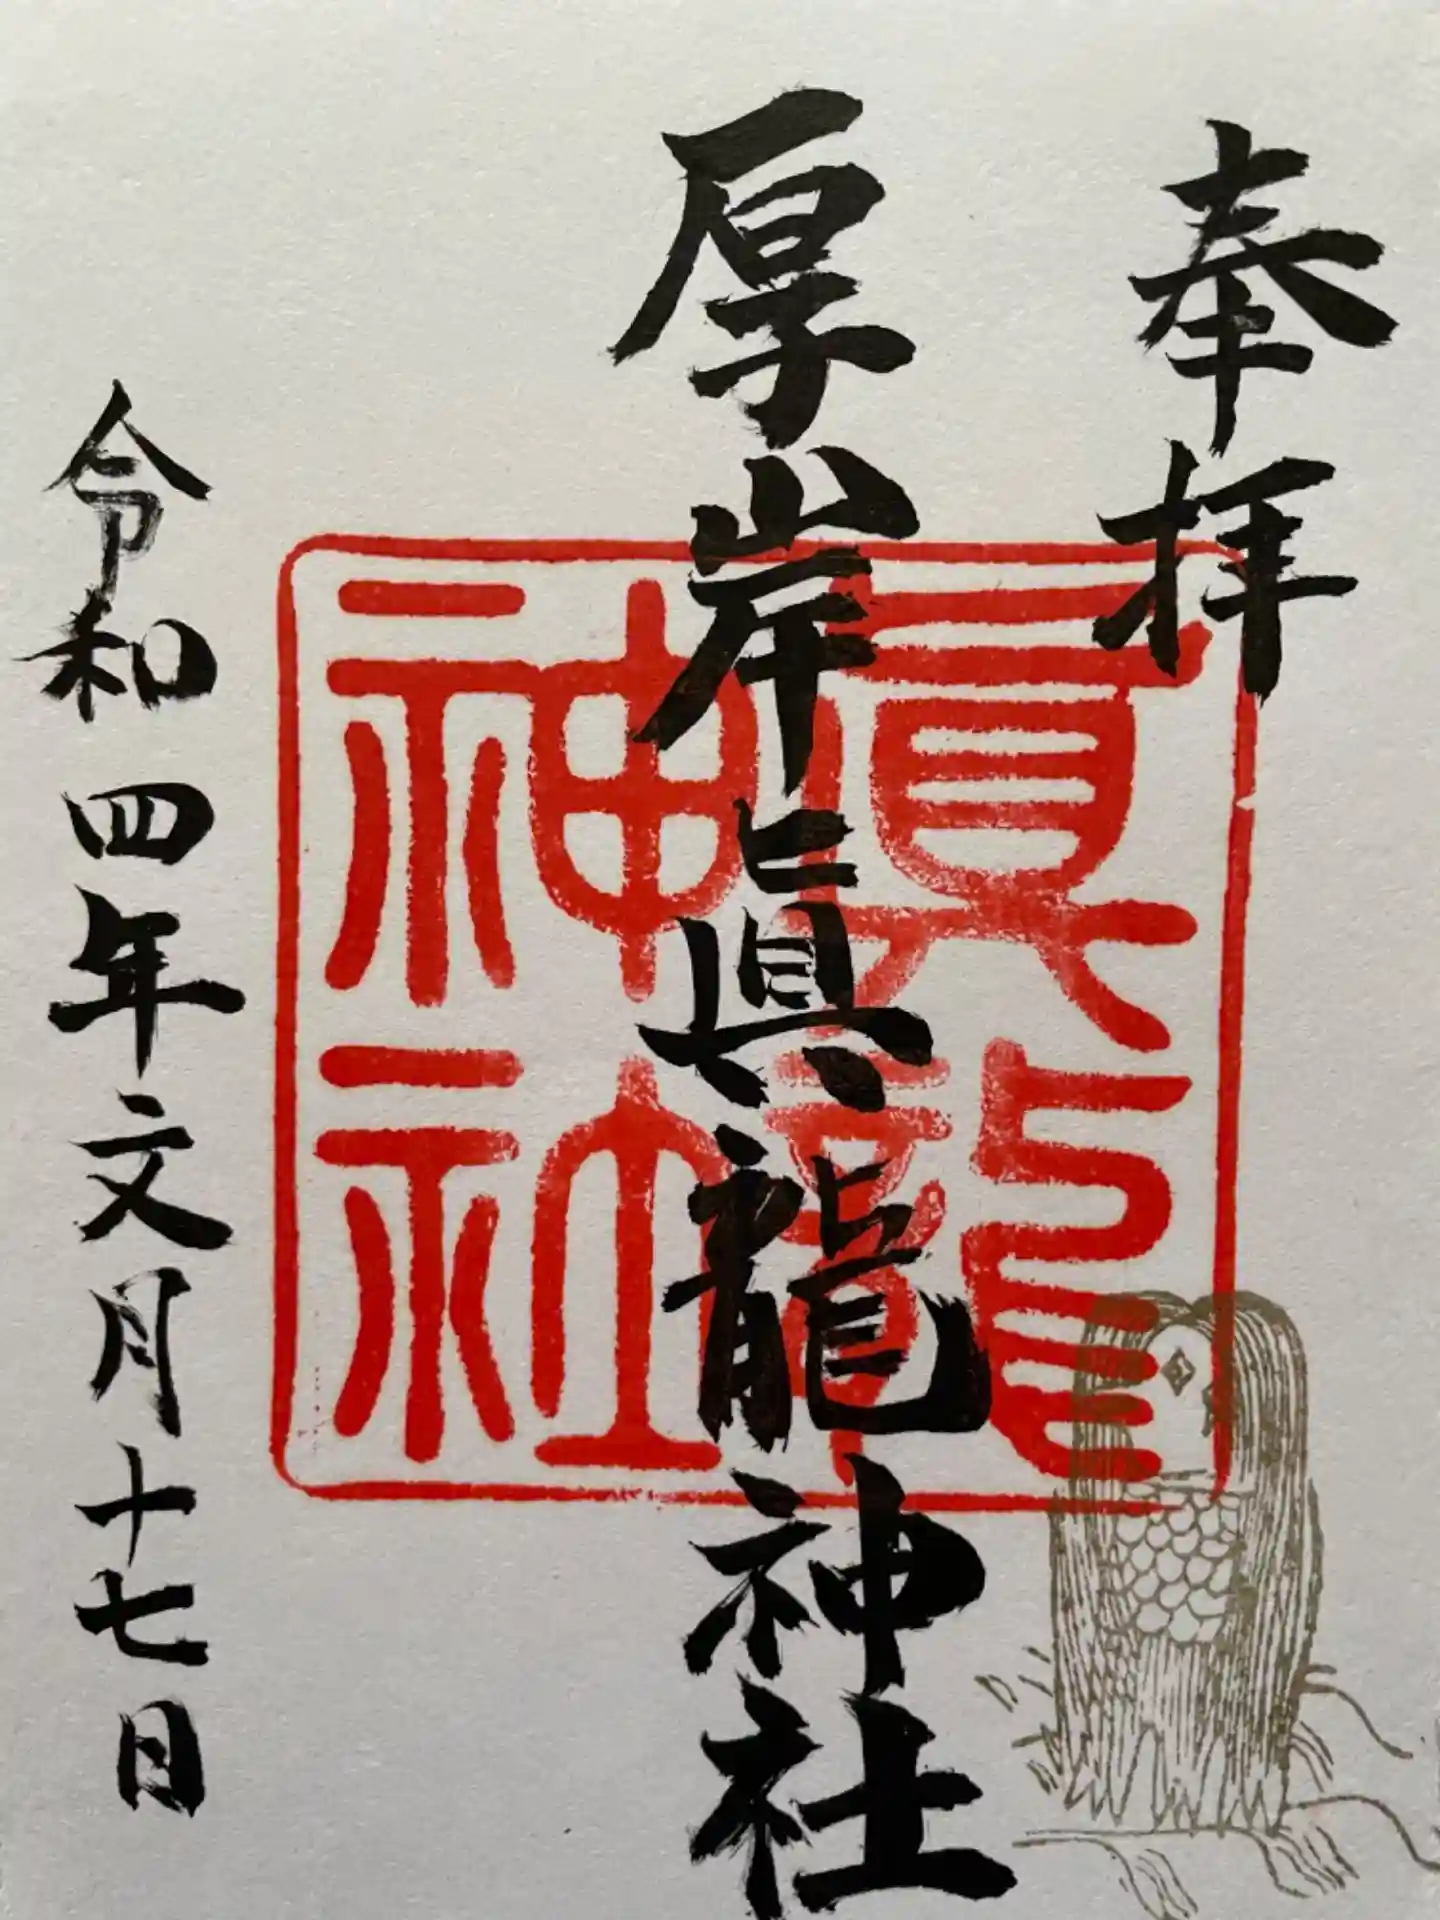 奉拝
厚岸眞龍神社
眞龍
神社
令和四年文月十七日